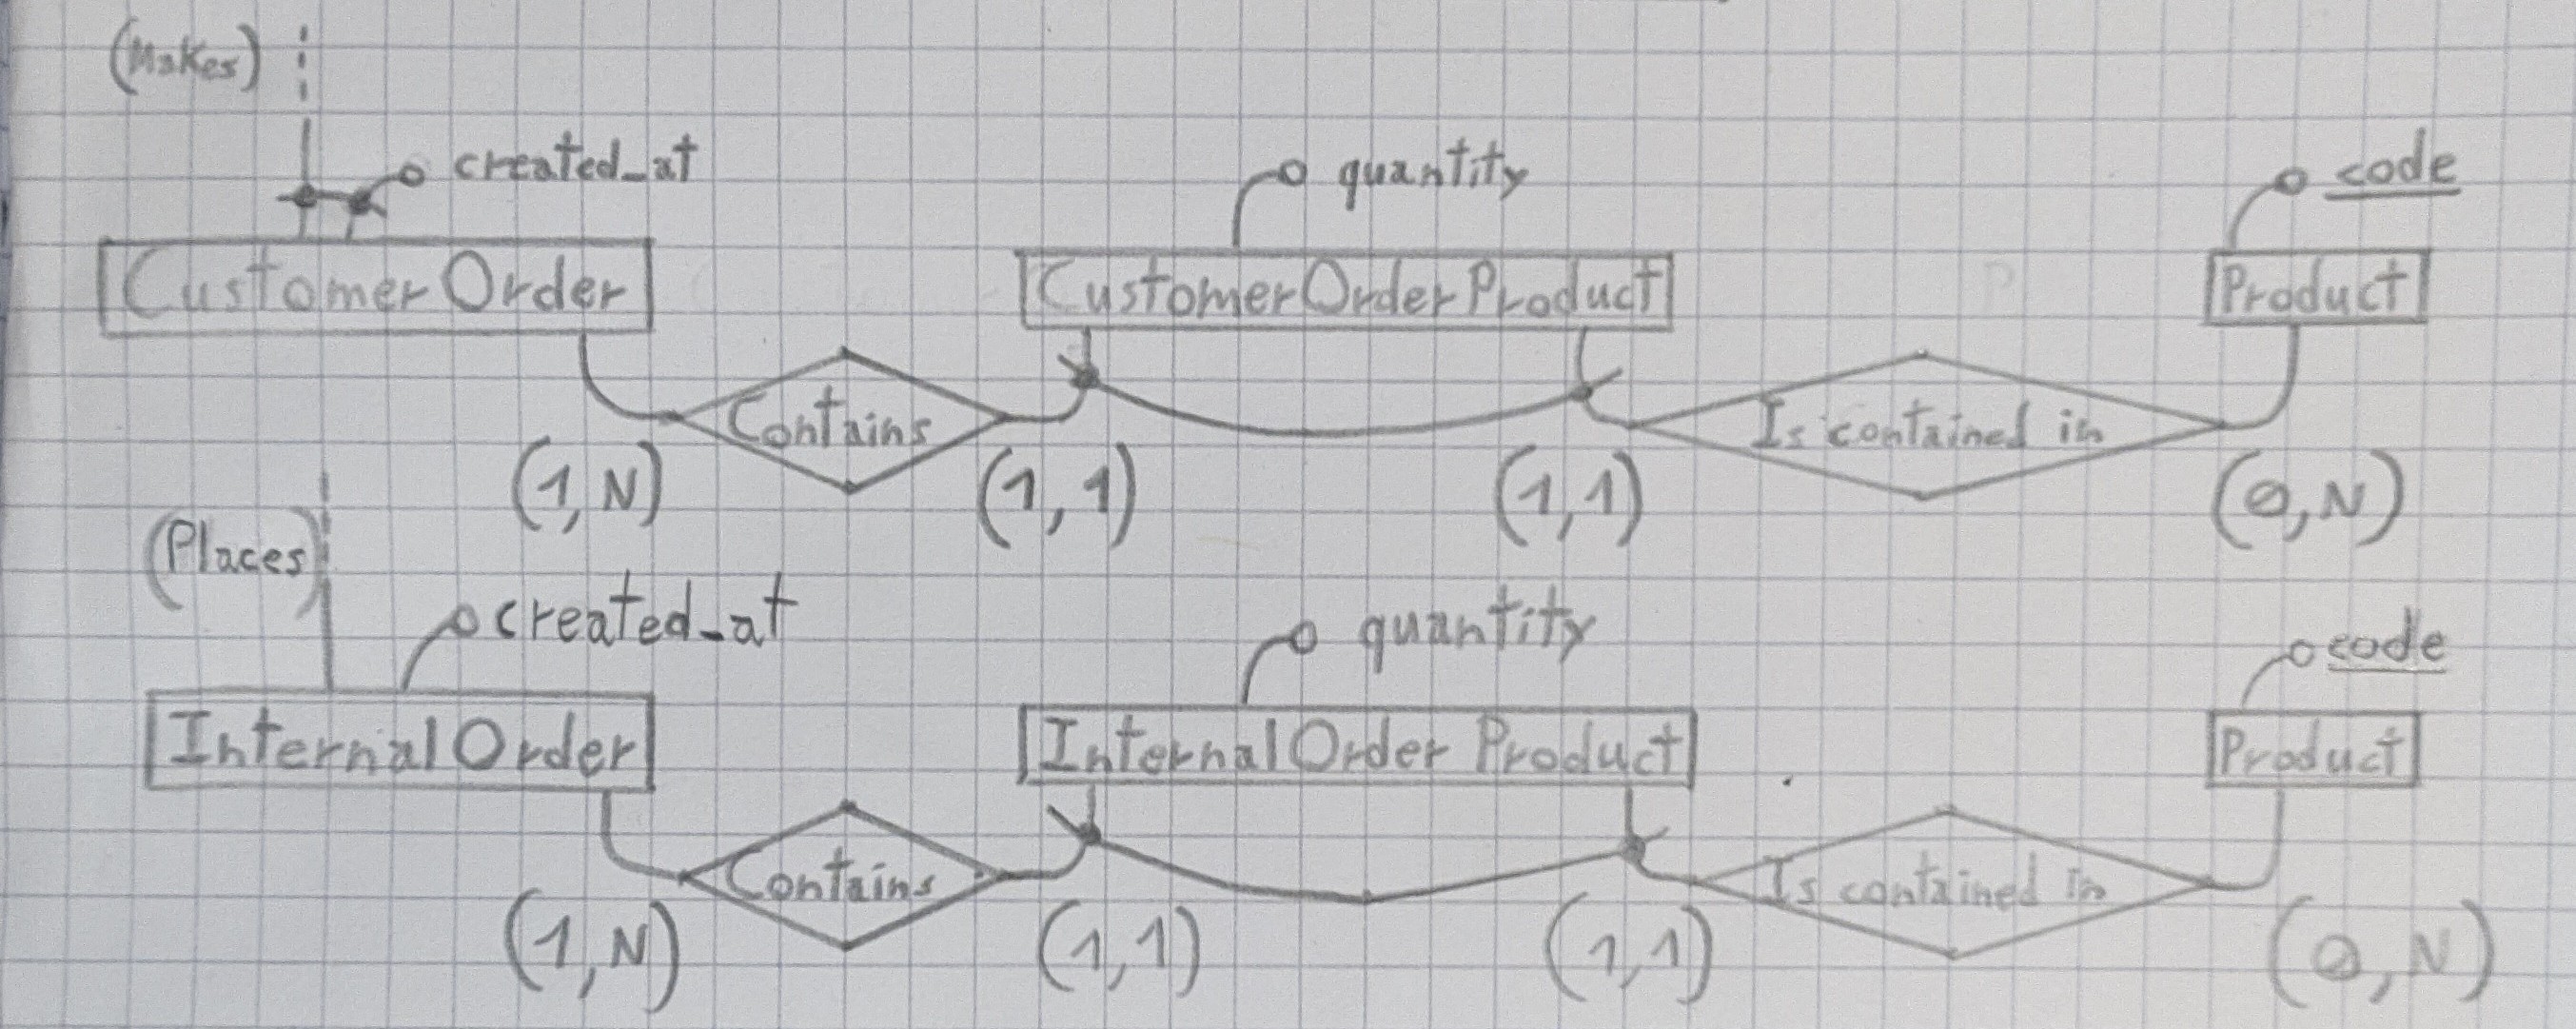 (Makes)
created_at
quantity
code
CustomerOrder
CustomerOrderProduct
Product
Contains
Is contained in
(1,N)
(1,1)
(1,1)
(0,N)
(Places)
created_at
quantity
code
InternalOrder
InternalOrder Product
Product
Contains
Is contained in
(1,N)
(1,1)
(1,1)
(0,N)